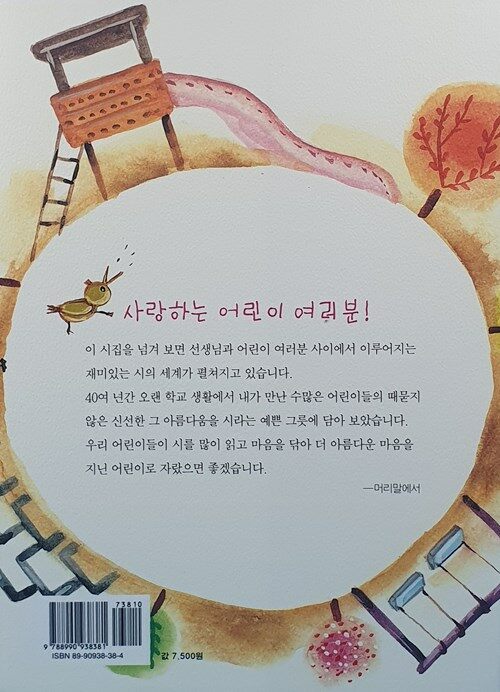 사랑하는 어린이 여러분!
이 시집을 넘겨 보면 선생님과 어린이 여러분 사이에서 이루어지는
재미있는 시의 세계가 펼쳐지고 있습니다.
40여 년간 오랜 학교 생활에서 내가 만난 수많은 어린이들의 때묻지
않은 신선한 그 아름다움을 시라는 예쁜 그릇에 담아 보았습니다.
우리 어린이들이 시를 많이 읽고 마음을 닦아 더 아름다운 마음을
지닌 어린이로 자랐으면 좋겠습니다.
—머리말에서
73810
9 788990 938381
ISBN 89-90938-38-4
값 7,500원